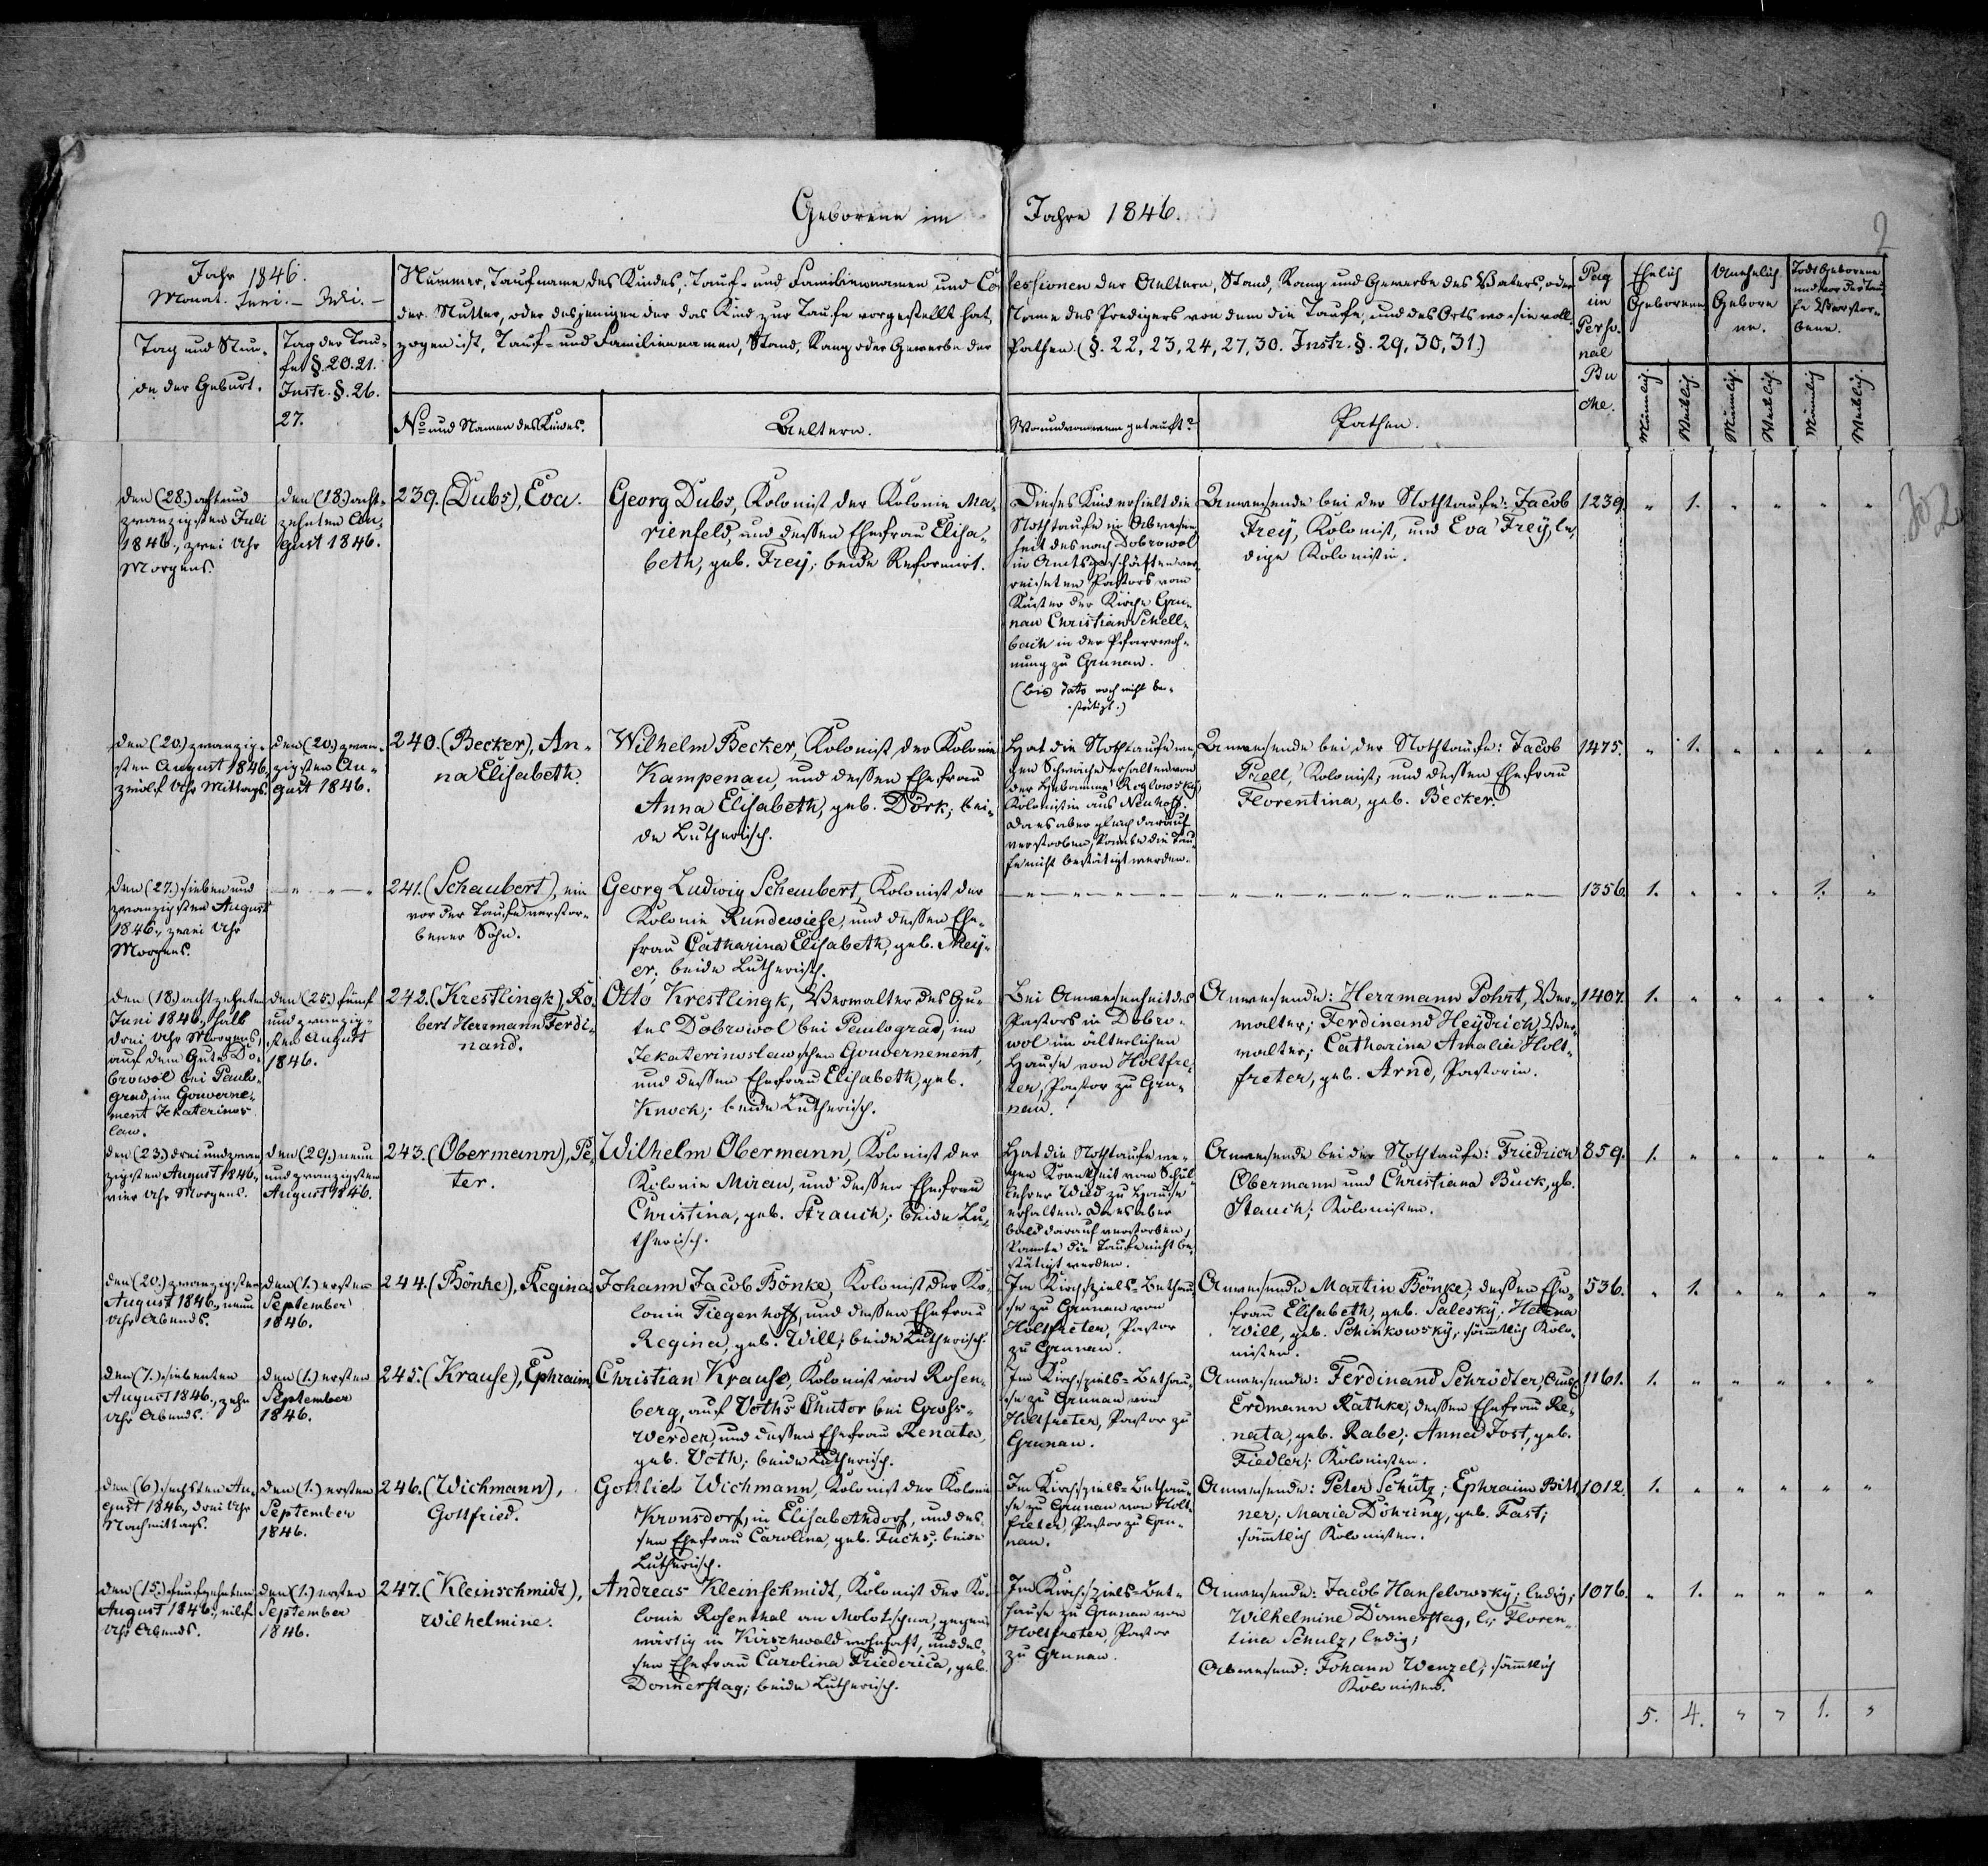 Geborene im Jahre 1846.
2
302
Jahr 1846.
Monat. Juni. – Juli. –
Tag und Stun-
de der Geburt.
Tag der Tau-
fe §. 20. 21.
Instr. §. 26.
27.
Nummer, Taufname des Kindes, Tauf- und Familiennamen und Confessionen der Aeltern, Stand, Rang und Gewerbe des Vaters, oder
der Mutter, oder desjenigen der das Kind zur Taufe vorgestellt hat, Name des Predigers von dem die Taufe, und des Orts wo sie voll-
zogen ist, Tauf- und Familiennamen, Stand, Rang oder Gewerbe der Pathen (§. 22, 23, 24, 27, 30. Instr. §. 29, 30, 31.)
No und Namen des Kindes.
Aeltern.
Wo und von wem getauft?
Pathen.
Pag
im
Perso-
nal
Bu
che.
Ehelich
Geborene
Unehelich
Gebore
ne.
Todt Geborene
und vor der Tau-
fe Verstor-
bene.
Männlich. Weiblich. Männlich. Weiblich. Männlich Weiblich.
den (28.) acht und
zwanzigsten Juli
1846., zwei Uhr
Morgens.
den (18.) acht-
zehnten Au-
gust 1846.
239. (Dubs), Eva.
Georg Dubs, Kolonist der Kolonie Ma-
rienfeld, und dessen Ehefrau Elisa-
beth, geb. Frey; beide Reformirt.
Dieses Kind erhielt die
Nothtaufe in Abwesen-
heit des nach Dobrowol
in Amtsgeschäften ver-
reiseten Pastors vom
Küster der Kirche Gru-
nau Christian Schell-
bach in der Pfarrwoh-
nung zu Grunau.
(bis dato noch nicht be-
stätigt.)
Anwesende bei der Nothtaufe: Jacob
Frey, Kolonist, und Eva Frey, le-
dige Kolonistin.
1239. " 1. " " " "
den (20.) zwanzig-
sten August 1846,
zwölf Uhr Mittags.
den (20.) zwan-
zigsten Au-
gust 1846.
240. (Becker), An-
na Elisabeth.
Wilhelm Becker, Kolonist der Kolonie
Kampenau, und dessen Ehefrau
Anna Elisabeth, geb. Dörk; bei-
de Lutherisch.
Hat die Nothtaufe we-
gen Schwäche erhalten von
der Hebamme Roglowsky
Kolonistin aus Neuhoff.
Da es aber gleich darauf
verstorben, konnte die Tau-
fe nicht bestätigt werden.
Anwesende bei der Nothtaufe: Jacob
Prell, Kolonist; und dessen Ehefrau
Florentina, geb. Becker.
1475. " 1. " " " "
den (27.) sieben und
zwanzigsten August
1846., zwei Uhr
Morgens.
— " — " — "
241. (Schaubert), ein
vor der Taufe verstor-
bener Sohn.
Georg Ludwig Schaubert, Kolonist der
Kolonie Rundewiese, und dessen Ehe-
frau Catharina Elisabeth, geb. Mey-
er; beide Lutherisch.
1356. 1. " " " 1. "
den (18.) achtzehnten
Juni 1846., halb
drei Uhr Morgens,
auf dem Gute Do-
browol bei Pawlo-
grad, im Gouverne-
ment Jekaterinos
law.
den (25.) fünf
und zwanzig-
sten August
1846.
242. (Krestlingk), Ro-
bert Herrmann Ferdi-
nand.
Otto Krestlingk, Verwalter des Gu-
tes Dobrowol bei Pawlograd, im
Jekaterinoslawschen Gouvernement,
und dessen Ehefrau Elisabeth, geb.
Knoch; beide Lutherisch.
Bei Anwesenheit des
Pastors in Dobro-
wol im älterlichen
Hause von Holtfre-
ter, Pastor zu Gru-
nau.
Anwesende: Herrmann Pohrt, Ver-
walter; Ferdinand Heydrich, Ver-
walter; Catharina Amalia Holt-
freter, geb. Arnd, Pastorin.
1407. 1. " " " " "
den (23.) drei und zwan-
zigsten August 1846.,
vier Uhr Morgens.
den (29.) neun
und zwanzigsten
August 1846.
243. (Obermann), Pe-
ter.
Wilhelm Obermann, Kolonist der
Kolonie Mirau, und dessen Ehefrau
Christina, geb. Strauch; beide Lu-
therisch.
Hat die Nothtaufe we-
gen Krankheit vom Schul-
lehrer Wied zu Hause
erhalten. Da es aber
bald darauf verstorben,
konnte die Taufe nicht be-
stätigt werden.
Anwesende bei der Nothtaufe: Friedrich
Obermann und Christiana Buck, gb.
Stauch; Kolonisten.
859. 1. " " " " "
den (20.) zwanzigsten
August 1846., neun
Uhr Abends.
den (1.) ersten
September
1846.
244. (Bönke), Regina.
Johann Jacob Bönke, Kolonist der Ko-
lonie Tiegenhoff, und dessen Ehefrau
Regina, geb. Will; beide Lutherisch.
Im Kirchspiels-Bethau-
se zu Grunau von
Holtfreter, Pastor
zu Grunau.
Anwesende Martin Bönke; dessen Ehe-
frau Elisabeth, geb. Salesky. Helena
Will, geb. Schinkowsky, sämmtlich Kolo-
nisten.
536. " 1. " " " "
den (7.) siebenten
August 1846., zehn
Uhr Abends.
den (1.) ersten
September
1846.
245. (Krause), Ephraim.
Christian Krause, Kolonist von Rosen-
berg, auf Voths Chutor bei Gross-
werder, und dessen Ehefrau Renata,
geb. Voth; beide Lutherisch.
Im Kirchspiels-Bethau-
se zu Grunau von
Holtfreter, Pastor zu
Grunau.
Anwesende: Ferdinand Schrödter,
Erdmann Rathke; dessen Ehefrau Re-
nata, geb. Rabe; Anna Jost, geb.
Fiedler; Kolonisten.
1161. 1. " " " " "
den (6.) sechsten Au-
gust 1846., drei Uhr
Nachmittags.
den (1.) ersten
September
1846.
246. (Wichmann),
Gottfried.
Gottlieb Wichmann, Kolonist der Kolonie
Kronsdorf, in Elisabethdorf, und des-
sen Ehefrau Carolina, geb. Fuchs; beide
Lutherisch.
Im Kirchspiels-Bethau-
se zu Grunau von Holt-
freter, Pastor zu Gru-
nau.
Anwesende: Peter Schütz; Ephraim Bitt-
ner; Maria Döhring, geb. Fast;
sämmtlich Kolonisten.
1012. 1. " " " " "
den (15.) funfzehnten
August 1846., eilf
Uhr Abends.
den (1.) ersten
September
1846.
247. (Kleinschmidt),
Wilhelmine.
Andreas Kleinschmidt, Kolonist der Ko-
lonie Rosenthal an Molotschna, gegen-
wärtig in Kirschwald wohnhaft, und des-
sen Ehefrau Carolina Friederica, geb.
Donnerstag; beide Lutherisch.
Im Kirchspiels-Bet-
hause zu Grunau von
Holtfreter, Pastor
zu Grunau.
Anwesende: Jacob Hanselowsky; ledig;
Wilhelmine Donnerstag, l.; Floren-
tina Schulz, ledig;
Abwesend: Johann Wenzel; sämmtlich
Kolonisten.
1076. " 1. " " " "
5. 4. " " 1. "